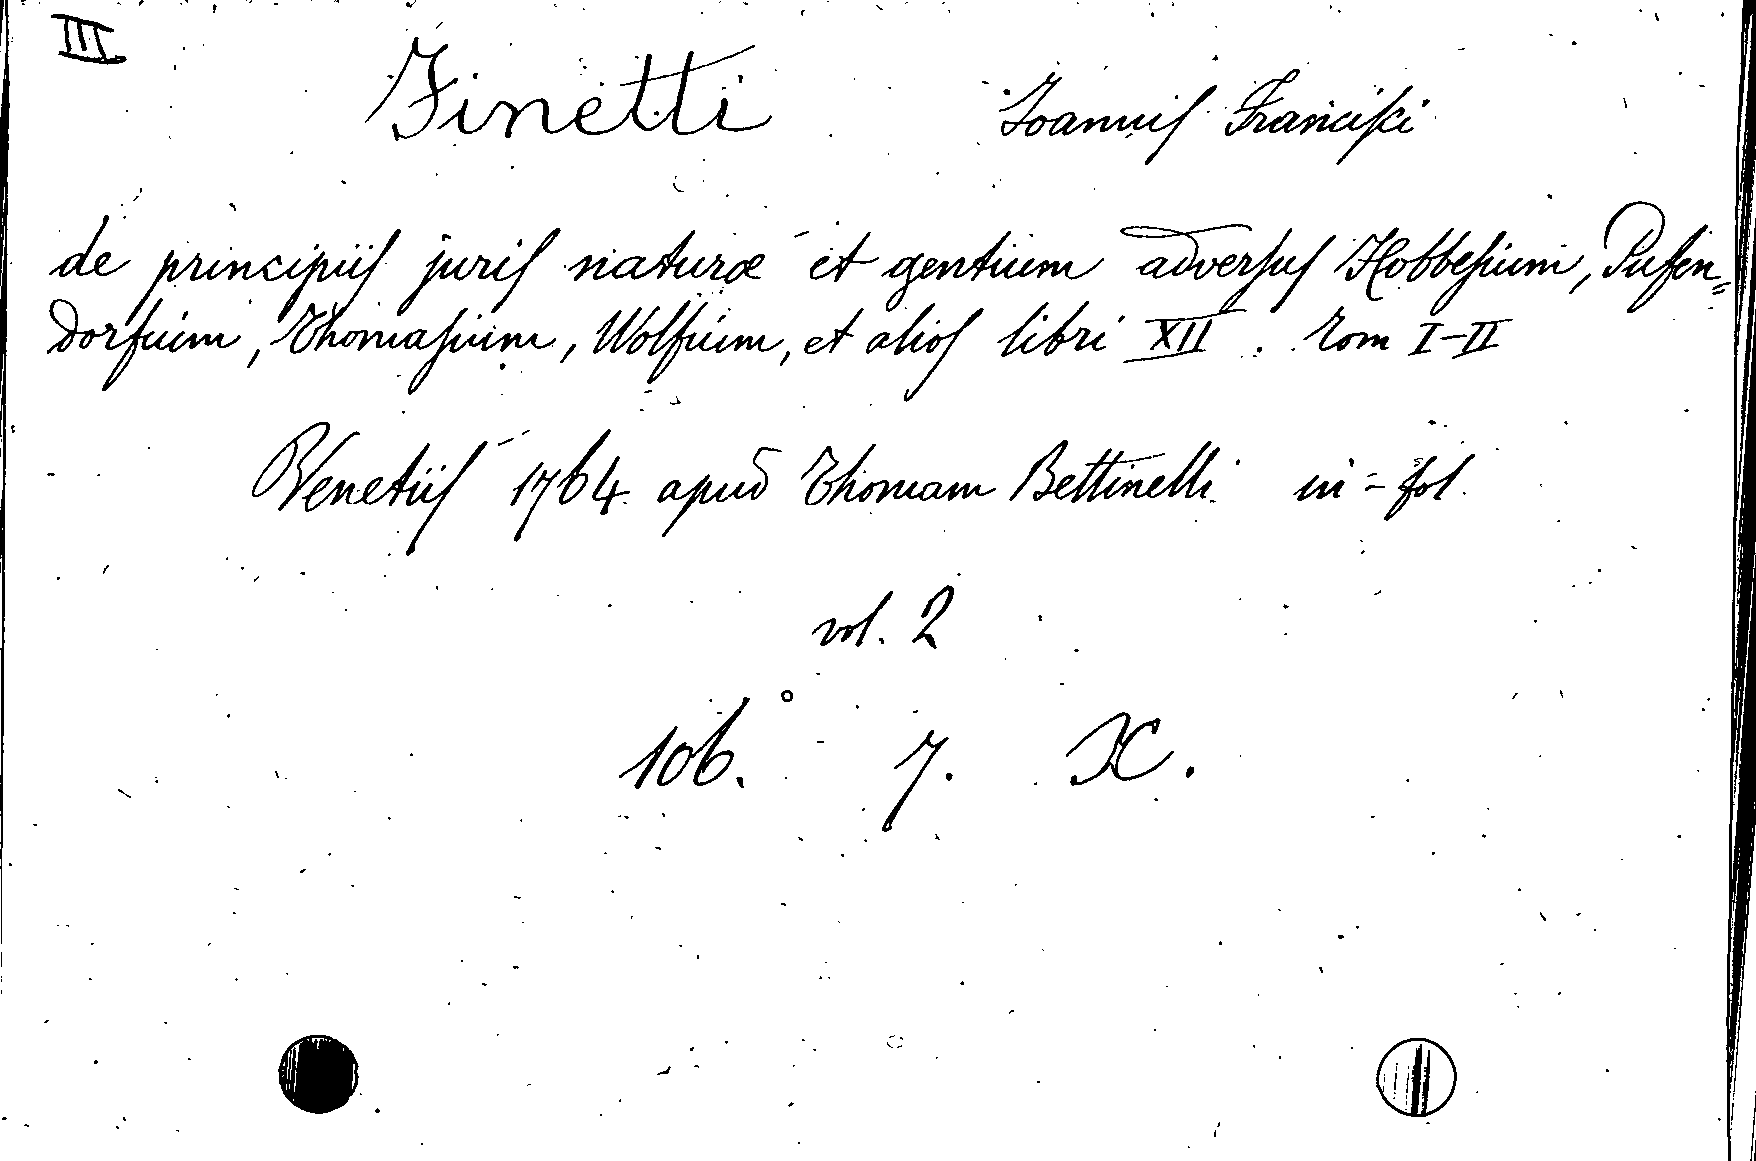 III
Finetti Joannis Francisci
de principiis juris naturæ et gentium adversus Hobbesium, Pufen=
dorfium, Thomasium, Wolfium, et alios libri XII. Tom I-II
Venetiis 1764 apud Thomam Bettinelli in=fol.
vol. 2
106. 7. X.